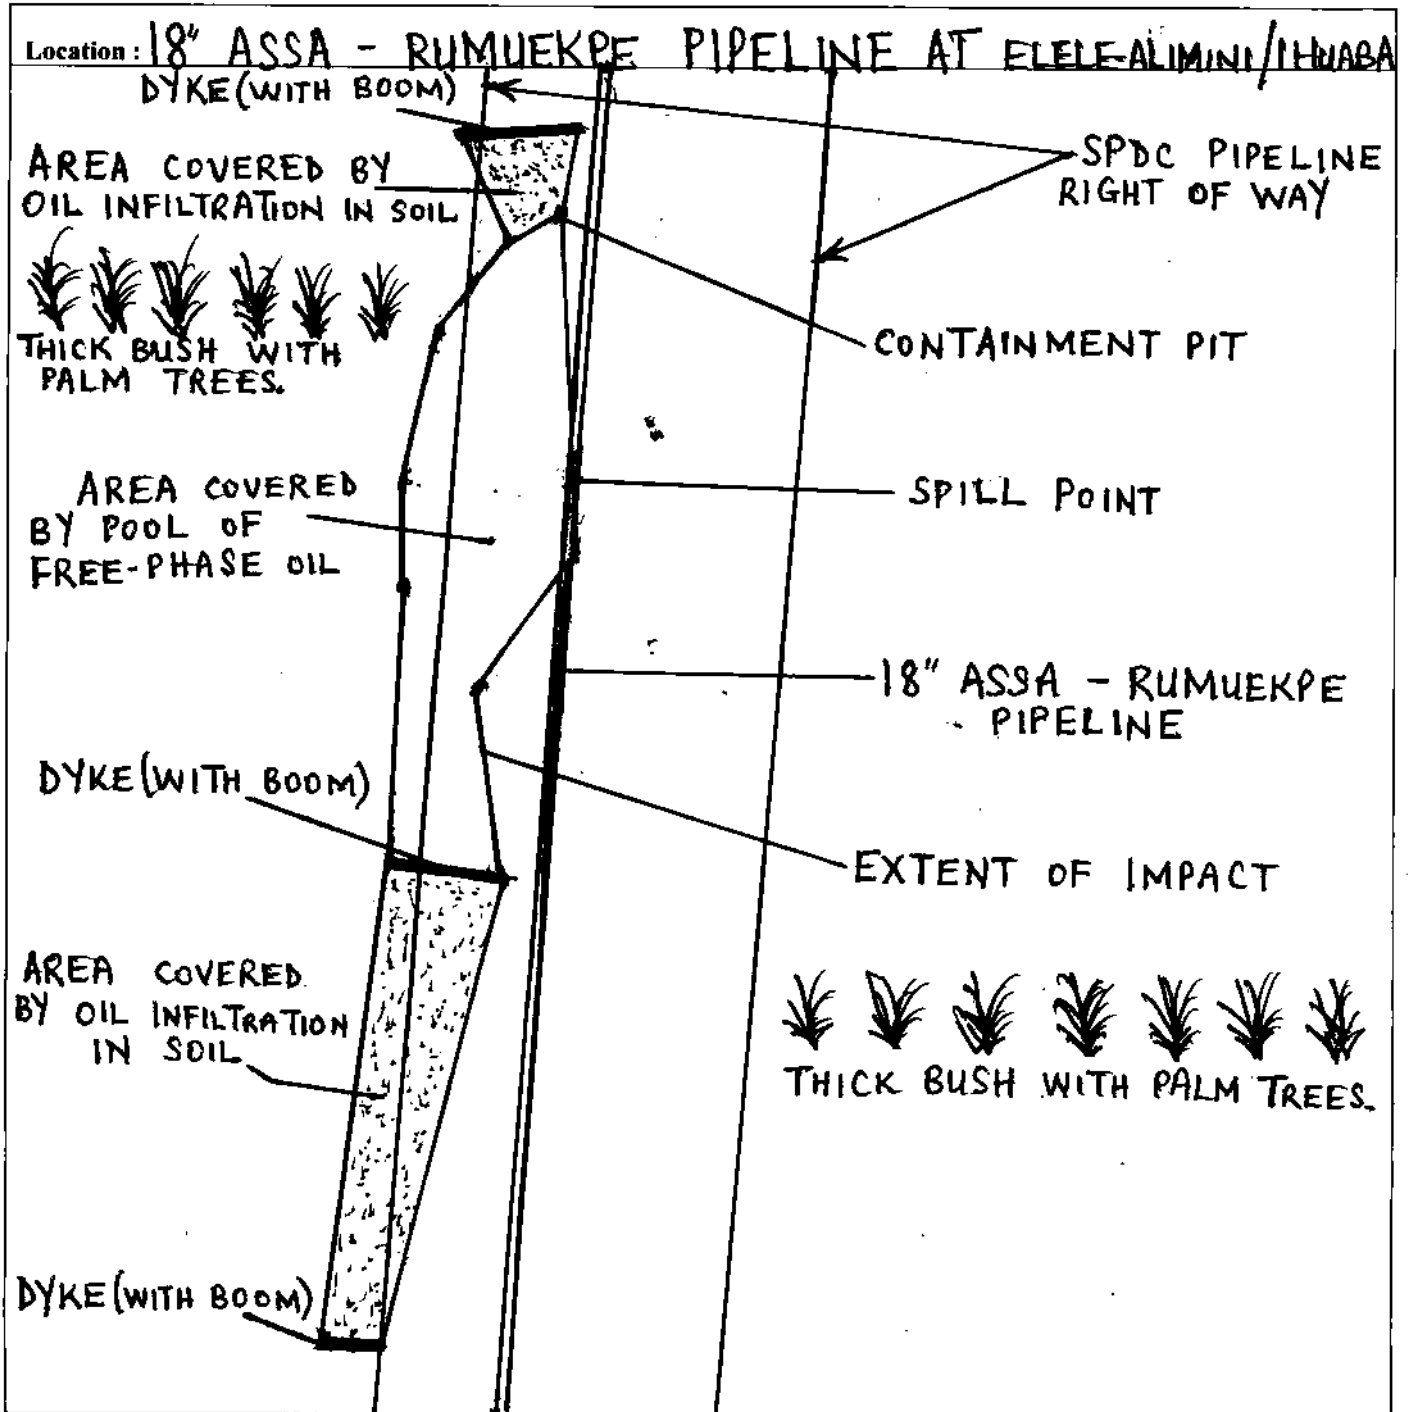 Location : 18" ASSA - RUMUEKPE PIPELINE AT ELELE-ALIMINI/IHUABA
DYKE (WITH BOOM)
AREA COVERED BY
OIL INFILTRATION IN SOIL
SPDC PIPELINE
RIGHT OF WAY
THICK BUSH WITH
PALM TREES.
CONTAINMENT PIT
AREA COVERED
BY POOL OF
FREE-PHASE OIL
SPILL POINT
18" ASSA - RUMUEKPE
PIPELINE
DYKE (WITH BOOM)
EXTENT OF IMPACT
AREA COVERED
BY OIL INFILTRATION
IN SOIL
THICK BUSH WITH PALM TREES.
DYKE (WITH BOOM)